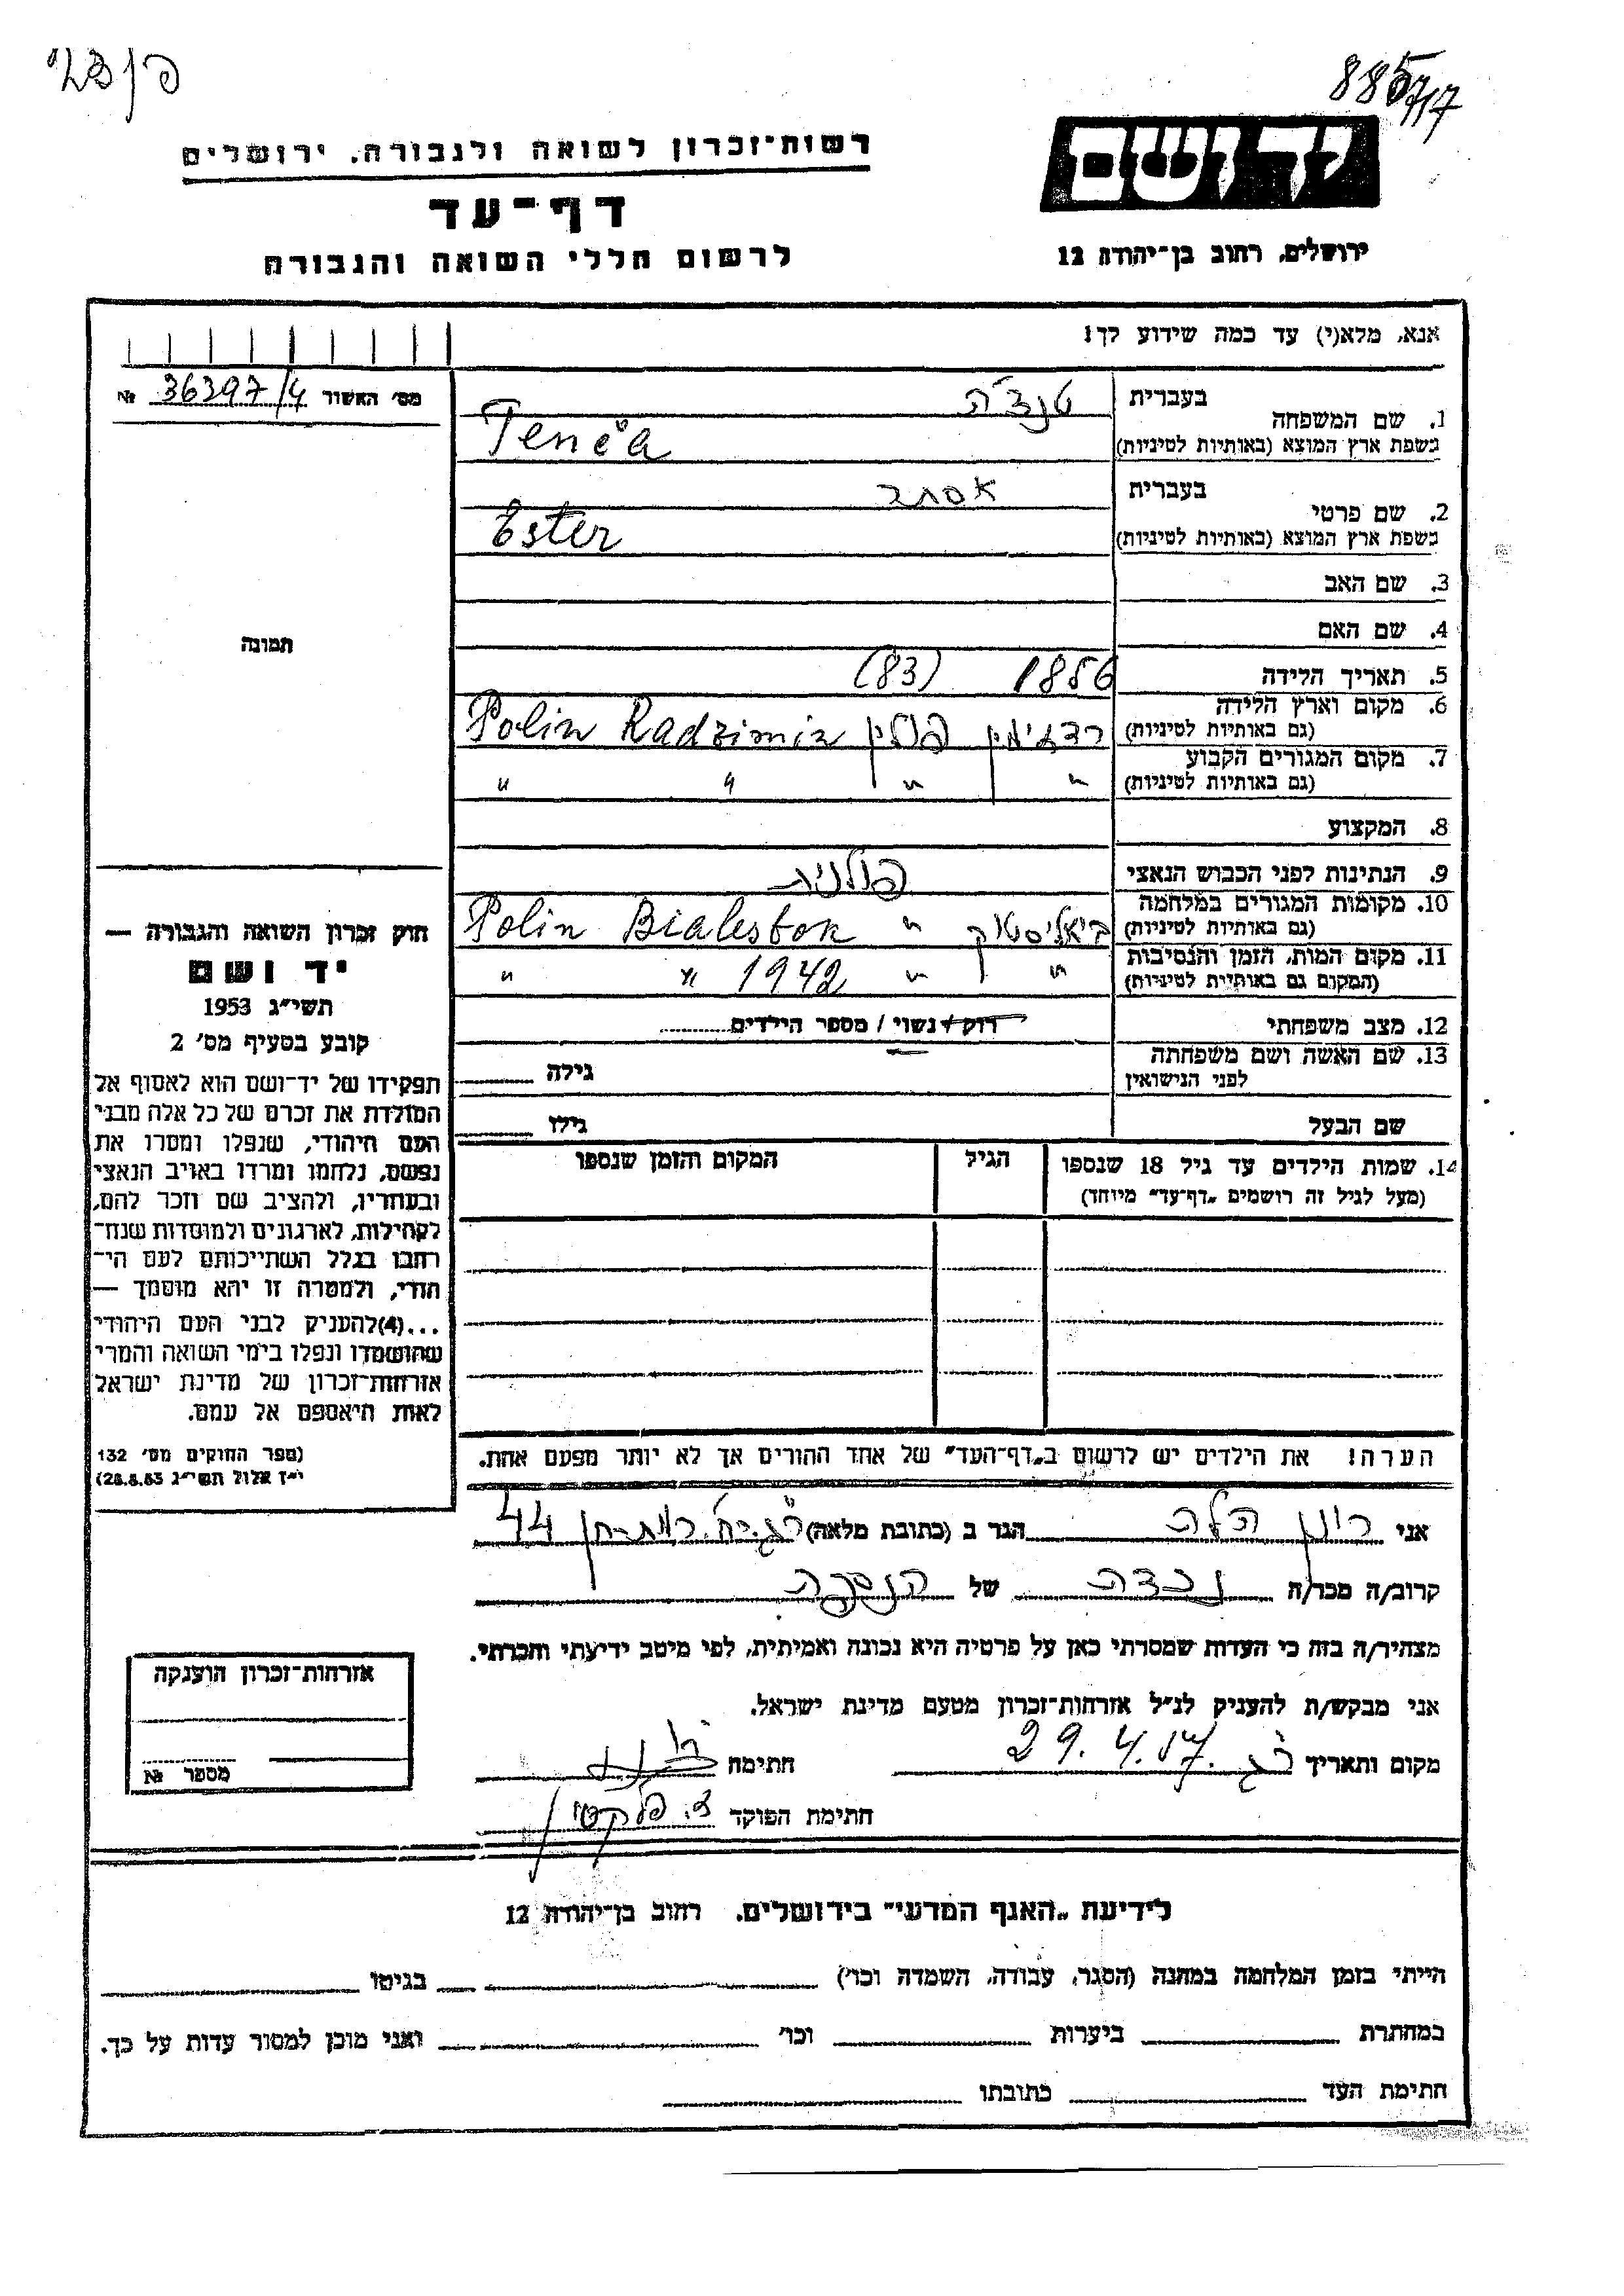 885717
יד ושם
רשות־זכרון לשואה ולגבורה, ירושלים
דף־עד
לרשום חללי השואה והגבורה
ירושלים, רחוב בן־יהודה 12
אנא, מלא(י) עד כמה שידוע לך!
מס׳ האשור № 36397/4
תמונה
1. שם המשפחה
בעברית טנצ'ה
בשפת ארץ המוצא (באותיות לטיניות) Tenc'a
2. שם פרטי
בעברית אסתר
בשפת ארץ המוצא (באותיות לטיניות) Ester
3. שם האב
4. שם האם
5. תאריך הלידה 1856 (83)
6. מקום וארץ הלידה
(גם באותיות לטיניות) רדזימין פולין Polin Radzimin
7. מקום המגורים הקבוע
(גם באותיות לטיניות) " " " "
8. המקצוע
9. הנתינות לפני הכבוש הנאצי פולנית
10. מקומות המגורים במלחמה
(גם באותיות לטיניות) ביאליסטוק " Polin Bialestok
11. מקום המות, הזמן והנסיבות
(המקום גם באותיות לטיניות) " " 1942 " "
12. מצב משפחתי רוק / נשוי / מספר הילדים
13. שם האשה ושם משפחתה
לפני הנישואין גילה
שם הבעל גילו
14. שמות הילדים עד גיל 18 שנספו הגיל המקום והזמן שנספו
(מעל לגיל זה רושמים „דף־עד" מיוחד)
הערה! את הילדים יש לרשום ב„דף־העד" של אחד ההורים אך לא יותר מפעם אחת.
חוק זכרון השואה והגבורה —
יד ושם
תשי״ג 1953
קובע בסעיף מס׳ 2
תפקידו של יד־ושם הוא לאסוף אל
המולדת את זכרם של כל אלה מבני
העם היהודי, שנפלו ומסרו את
נפשם, נלחמו ומרדו באויב הנאצי
ובעוזריו, ולהציב שם וזכר להם,
לקהילות, לארגונים ולמוסדות שנח־
רבו בגלל השתייכותם לעם הי־
הודי, ולמטרה זו יהא מוסמך —
...(4) להעניק לבני העם היהודי
שהושמדו ונפלו בימי השואה והמרי
אזרחות־זכרון של מדינת ישראל
לאות היאספם אל עמם.
(ספר החוקים מס׳ 132
י״ז אלול תשי״ג 28.8.53)
אני רונן הלה הגר ב (כתובת מלאה) 44
קרוב/ה מכר/ה נכדה של הנספה
מצהיר/ה בזה כי העדות שמסרתי כאן על פרטיה היא נכונה ואמיתית, לפי מיטב ידיעתי והכרתי.
אני מבקש/ת להעניק לנ״ל אזרחות־זכרון מטעם מדינת ישראל.
מקום ותאריך ר"ג 29.4.57 חתימה
חתימת הפוקד
אזרחות־זכרון הוענקה
מספר №
לידיעת „האגף המדעי" בירושלים. רחוב בן־יהודה 12
הייתי בזמן המלחמה במחנה (הסגר, עבודה, השמדה וכו׳) בגיטו
במחתרת ביערות וכו׳ ואני מוכן למסור עדות על כך.
חתימת העד כתובתו